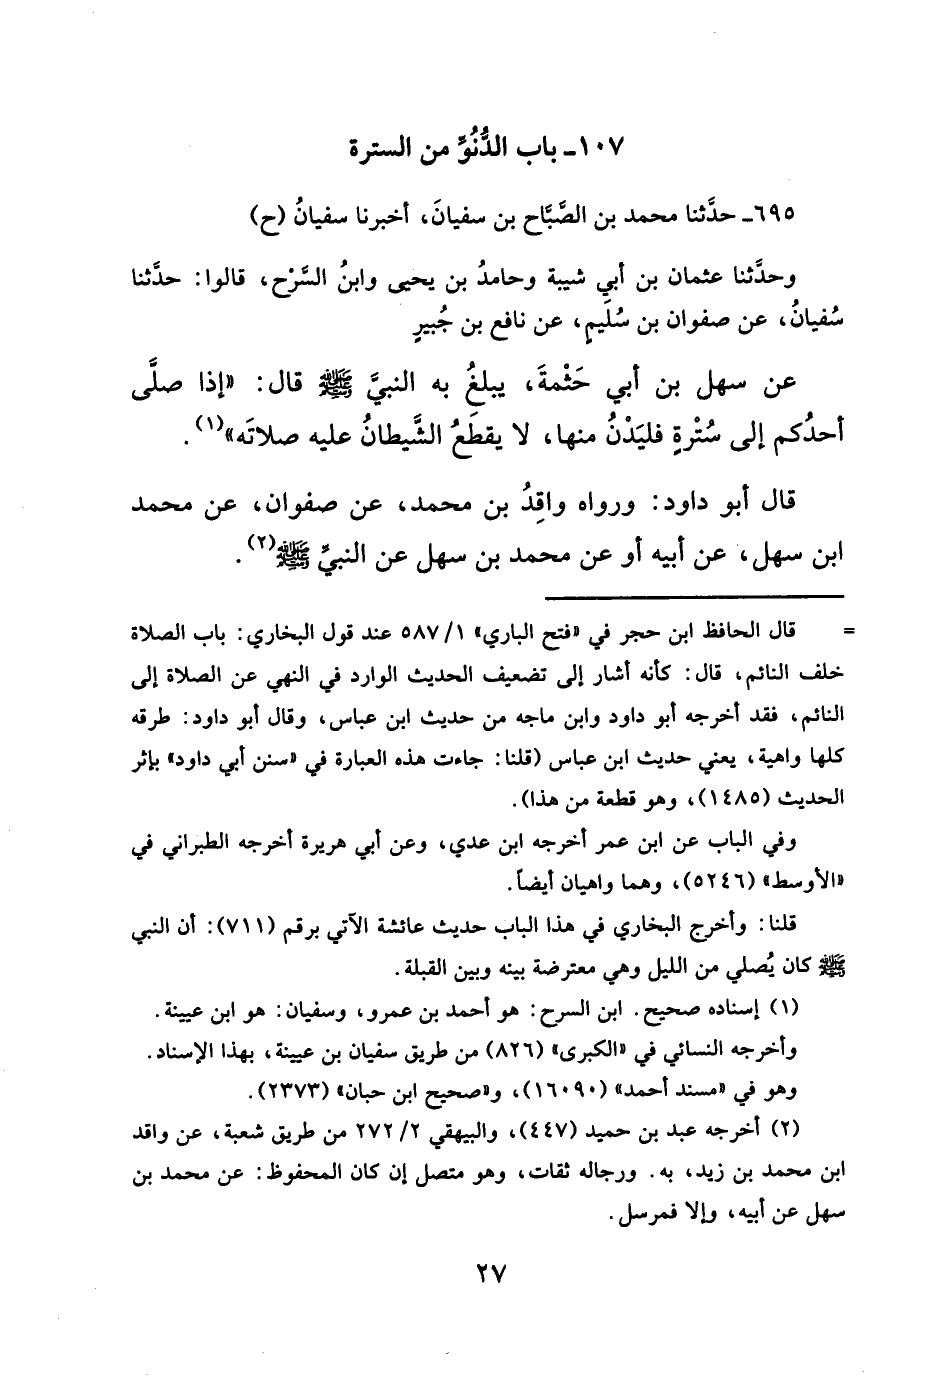 ١٠٧ـ باب الدُّنُوِّ من السترة
٦٩٥ـ حدَّثنا محمد بن الصَّبَّاح بن سفيانَ، أخبرنا سفيانُ (ح)
وحدَّثنا عثمان بن أبي شيبة وحامدُ بن يحيى وابنُ السَّرْح، قالوا: حدَّثنا
سُفيانُ، عن صفوان بن سُلَيمٍ، عن نافع بن جُبيرٍ
عن سهل بن أبي حَثْمةَ، يبلغُ به النبيَّ ﷺ قال: «إذا صلَّى
أحدُكم إلى سُتْرةٍ فليَدْنُ منها، لا يقطَعُ الشَّيطانُ عليه صلاتَه»(١).
قال أبو داود: ورواه واقِدُ بن محمد، عن صفوان، عن محمد
ابن سهل، عن أبيه أو عن محمد بن سهل عن النبيِّ ﷺ(٢).
= قال الحافظ ابن حجر في «فتح الباري» ١/ ٥٨٧ عند قول البخاري: باب الصلاة
خلف النائم، قال: كأنه أشار إلى تضعيف الحديث الوارد في النهي عن الصلاة إلى
النائم، فقد أخرجه أبو داود وابن ماجه من حديث ابن عباس، وقال أبو داود: طرقه
كلها واهية، يعني حديث ابن عباس (قلنا: جاءت هذه العبارة في «سنن أبي داود» بإثر
الحديث (١٤٨٥)، وهو قطعة من هذا).
وفي الباب عن ابن عمر أخرجه ابن عدي، وعن أبي هريرة أخرجه الطبراني في
«الأوسط» (٥٢٤٦)، وهما واهيان أيضاً.
قلنا: وأخرج البخاري في هذا الباب حديث عائشة الآتي برقم (٧١١): أن النبي
ﷺ كان يُصلي من الليل وهي معترضة بينه وبين القبلة.
(١) إسناده صحيح. ابن السرح: هو أحمد بن عمرو، وسفيان: هو ابن عيينة.
وأخرجه النسائي في «الكبرى» (٨٢٦) من طريق سفيان بن عيينة، بهذا الإسناد.
وهو في «مسند أحمد» (١٦٠٩٠)، و«صحيح ابن حبان» (٢٣٧٣).
(٢) أخرجه عبد بن حميد (٤٤٧)، والبيهقي ٢/ ٢٧٢ من طريق شعبة، عن واقد
ابن محمد بن زيد، به. ورجاله ثقات، وهو متصل إن كان المحفوظ: عن محمد بن
سهل عن أبيه، وإلا فمرسل.
٢٧